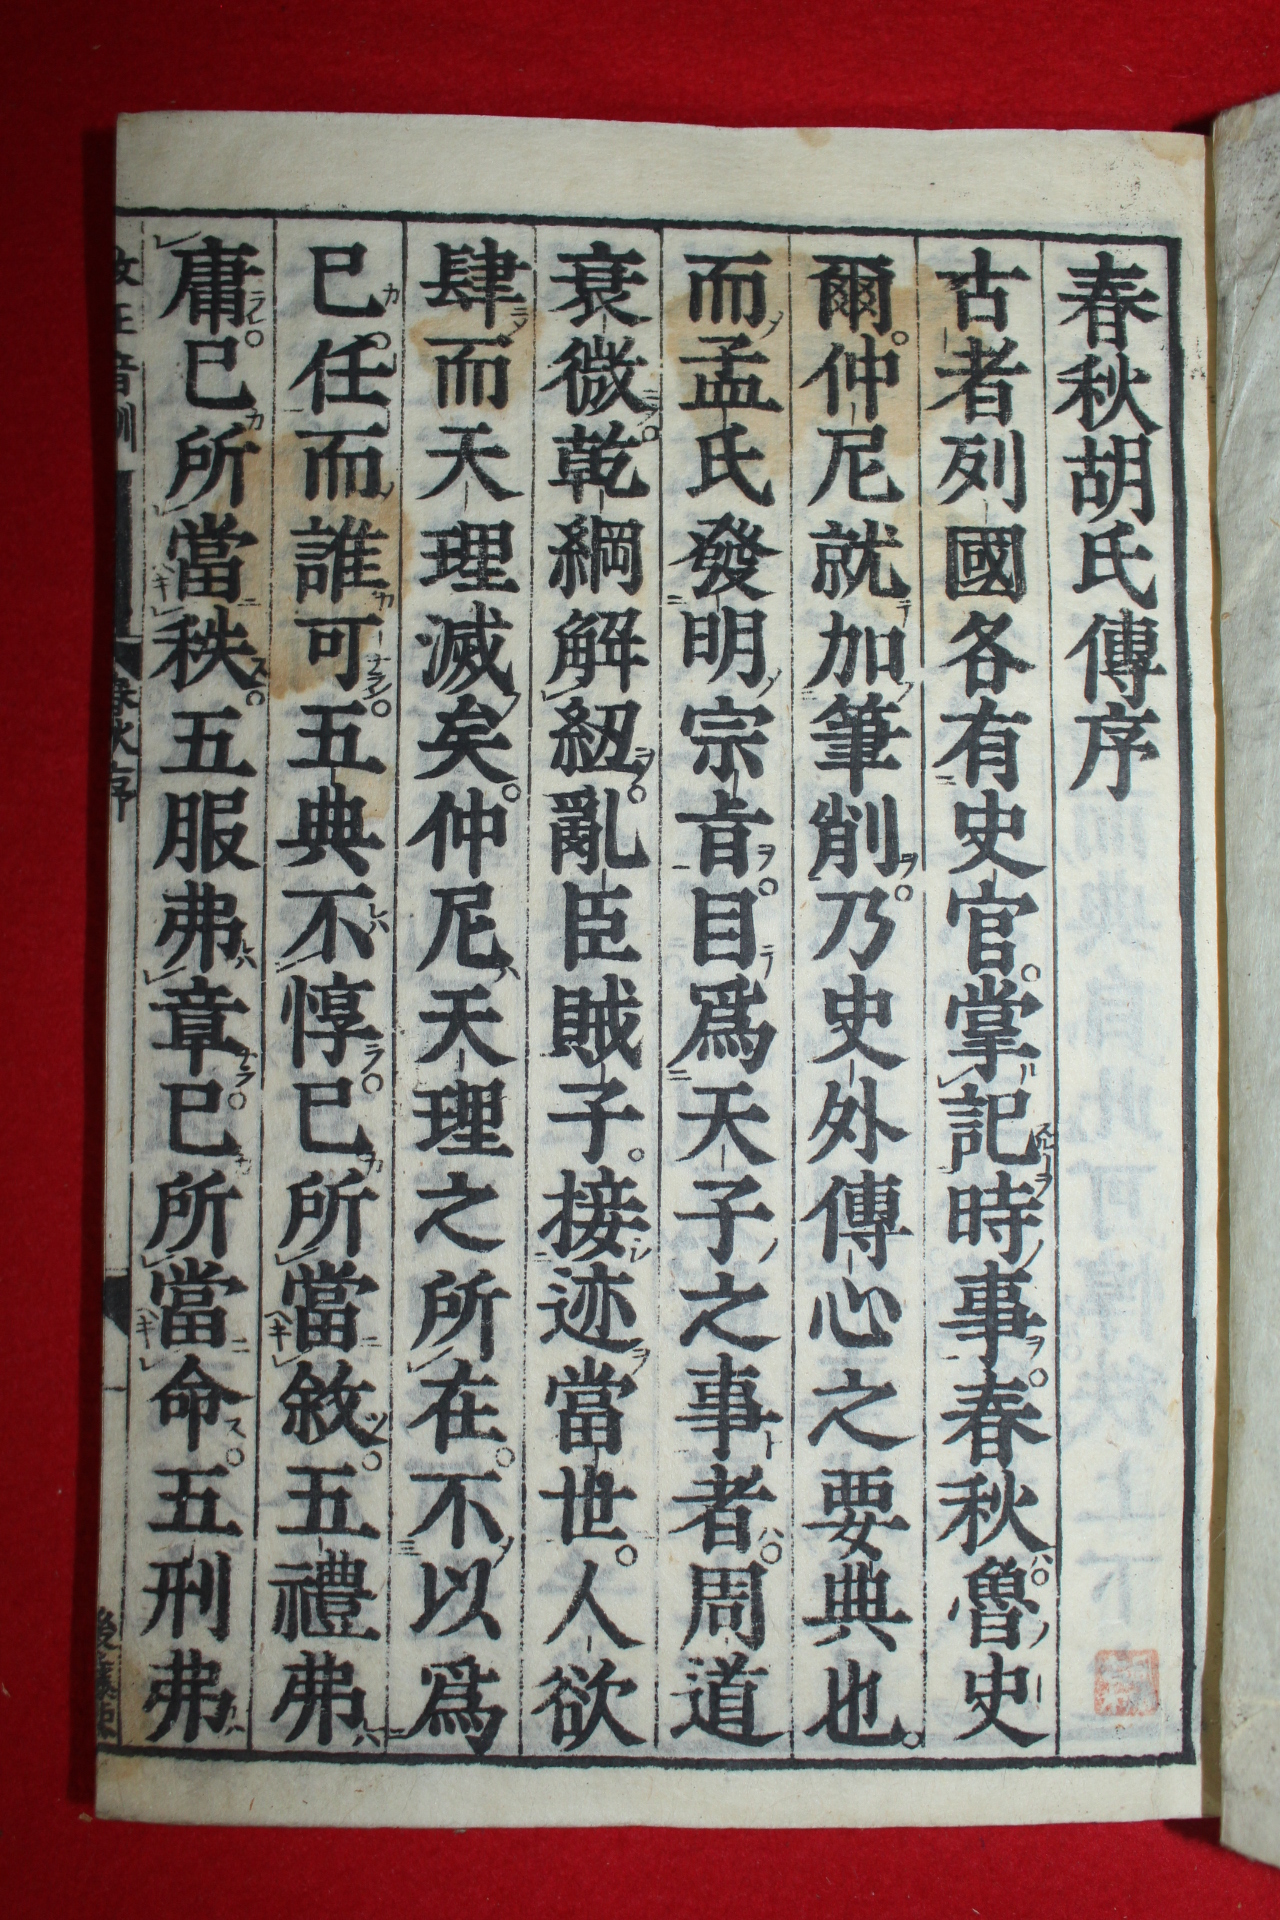 春秋胡氏傳序
古者列國各有史官。掌記時事。春秋。魯史
爾。仲尼就加筆削。乃史外傳心之要典也。
而孟氏發明宗旨。目爲天子之事者。周道
衰微。乾綱解紐。亂臣賊子。接迹當世。人欲
肆而天理滅矣。仲尼天理之所在。不以爲
已任而誰可。五典不惇。已所當敘。五禮弗
庸。已所當秩。五服弗章。已所當命。五刑弗
春秋序